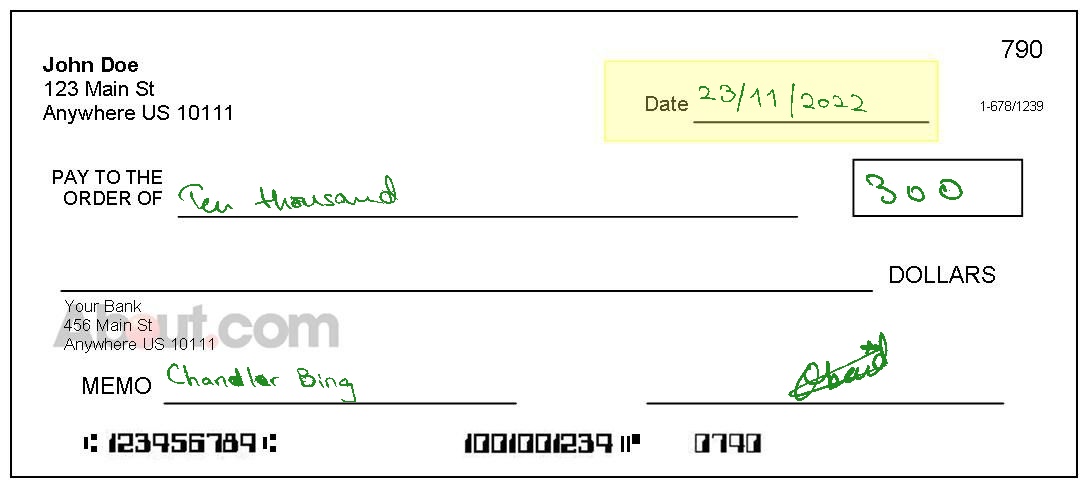 790
John Doe
123 Main St
Anywhere US 10111
Date 23/11/2022
1-678/1239
PAY TO THE
ORDER OF Ten thousand
300
DOLLARS
Your Bank
456 Main St
Anywhere US 10111
About.com
MEMO Chandler Bing
⑆123956789⑆ 1001001239⑈ 0790